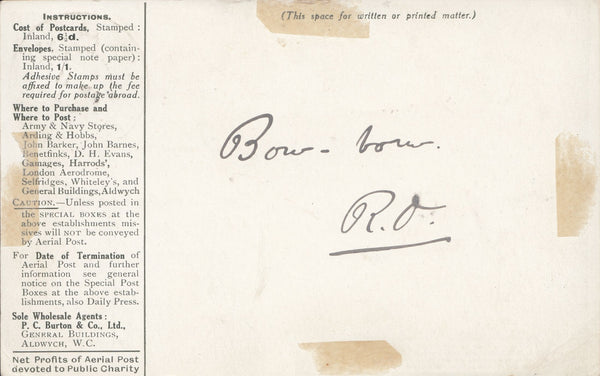 INSTRUCTIONS.
Cost of Postcards, Stamped :
Inland, 6½d.
Envelopes. Stamped (contain-
ing special note paper):
Inland, 1/1.
Adhesive Stamps must be
affixed to make up the fee
required for postage abroad.
Where to Purchase and
Where to Post :
Army & Navy Stores,
Arding & Hobbs,
John Barker, John Barnes,
Benetfinks, D. H. Evans,
Gamages, Harrods',
London Aerodrome,
Selfridges, Whiteley's, and
General Buildings, Aldwych
CAUTION.—Unless posted in
the SPECIAL BOXES at the
above establishments mis-
sives will NOT be conveyed
by Aerial Post.
For Date of Termination of
Aerial Post and further
information see general
notice on the Special Post
Boxes at the above estab-
lishments, also Daily Press.
Sole Wholesale Agents :
P. C. Burton & Co., Ltd.,
GENERAL BUILDINGS,
ALDWYCH, W.C.
Net Profits of Aerial Post
devoted to Public Charity
(This space for written or printed matter.)
Bow-bow.
R.O.